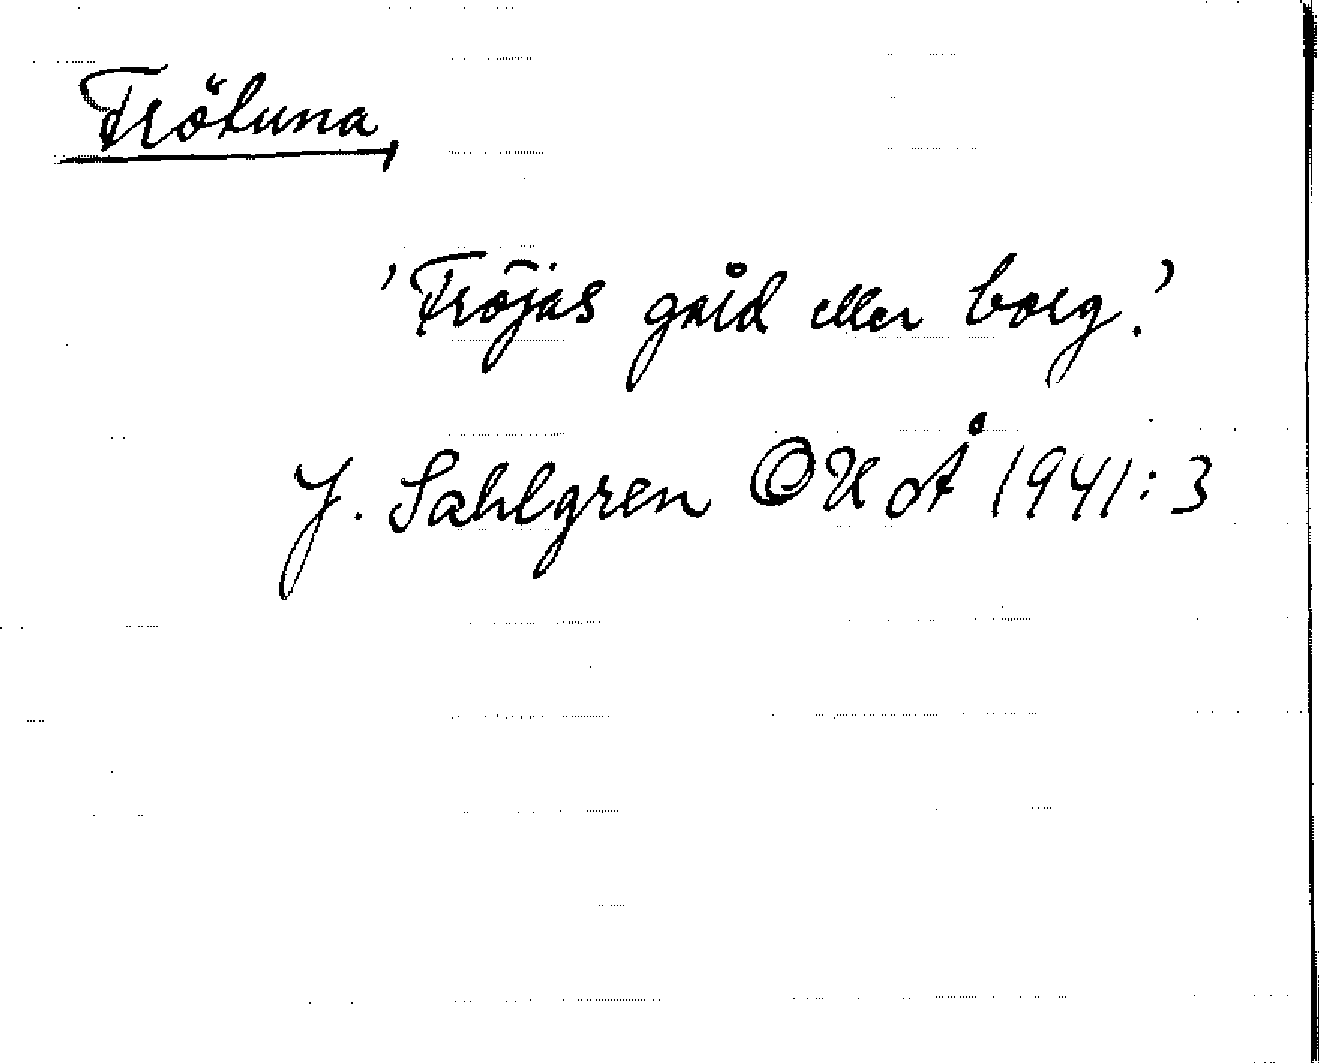 Frötuna,
'Fröjas gård eller borg.'
J. Sahlgren OUoÅ 1941:3